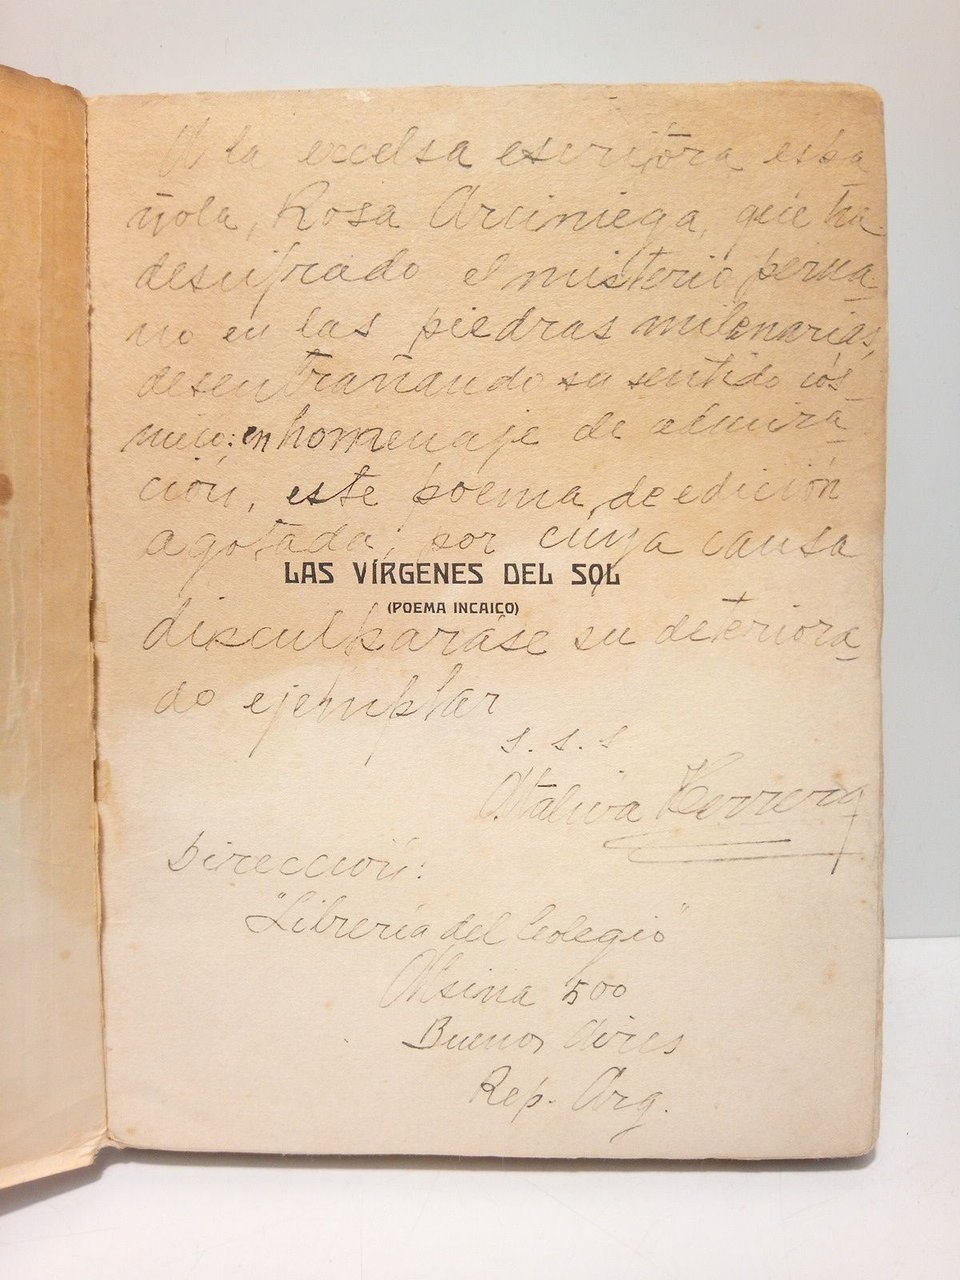 A la excelsa escritora espa
ñola, Rosa Arciniega, que ha
descifrado el misterio perua-
no en las piedras milenarias,
desentrañando su sentido cós-
mico: en homenaje de admira-
ción, este poema, de edición
agotada, por cuya causa
LAS VÍRGENES DEL SOL
(POEMA INCAICO)
disculparáse su deteriora-
do ejemplar
s. s. s
Ataliva Herrera
Dirección:
"Librería del Colegio"
Alsina 500
Buenos Aires
Rep. Arg.